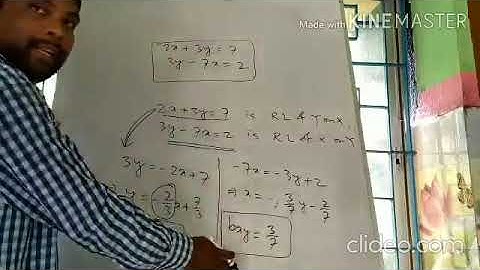 Made with KINEMASTER
2x + 3y = 7
3y - 7x = 2
2x + 3y = 7 is RL of Y on X,
3y - 7x = 2 is RL of X on Y
3y = -2x + 7
-7x = -3y + 2
y = -2/3 x + 7/3
⇒ x = 3/7 y - 2/7
bxy = 3/7
clideo.com